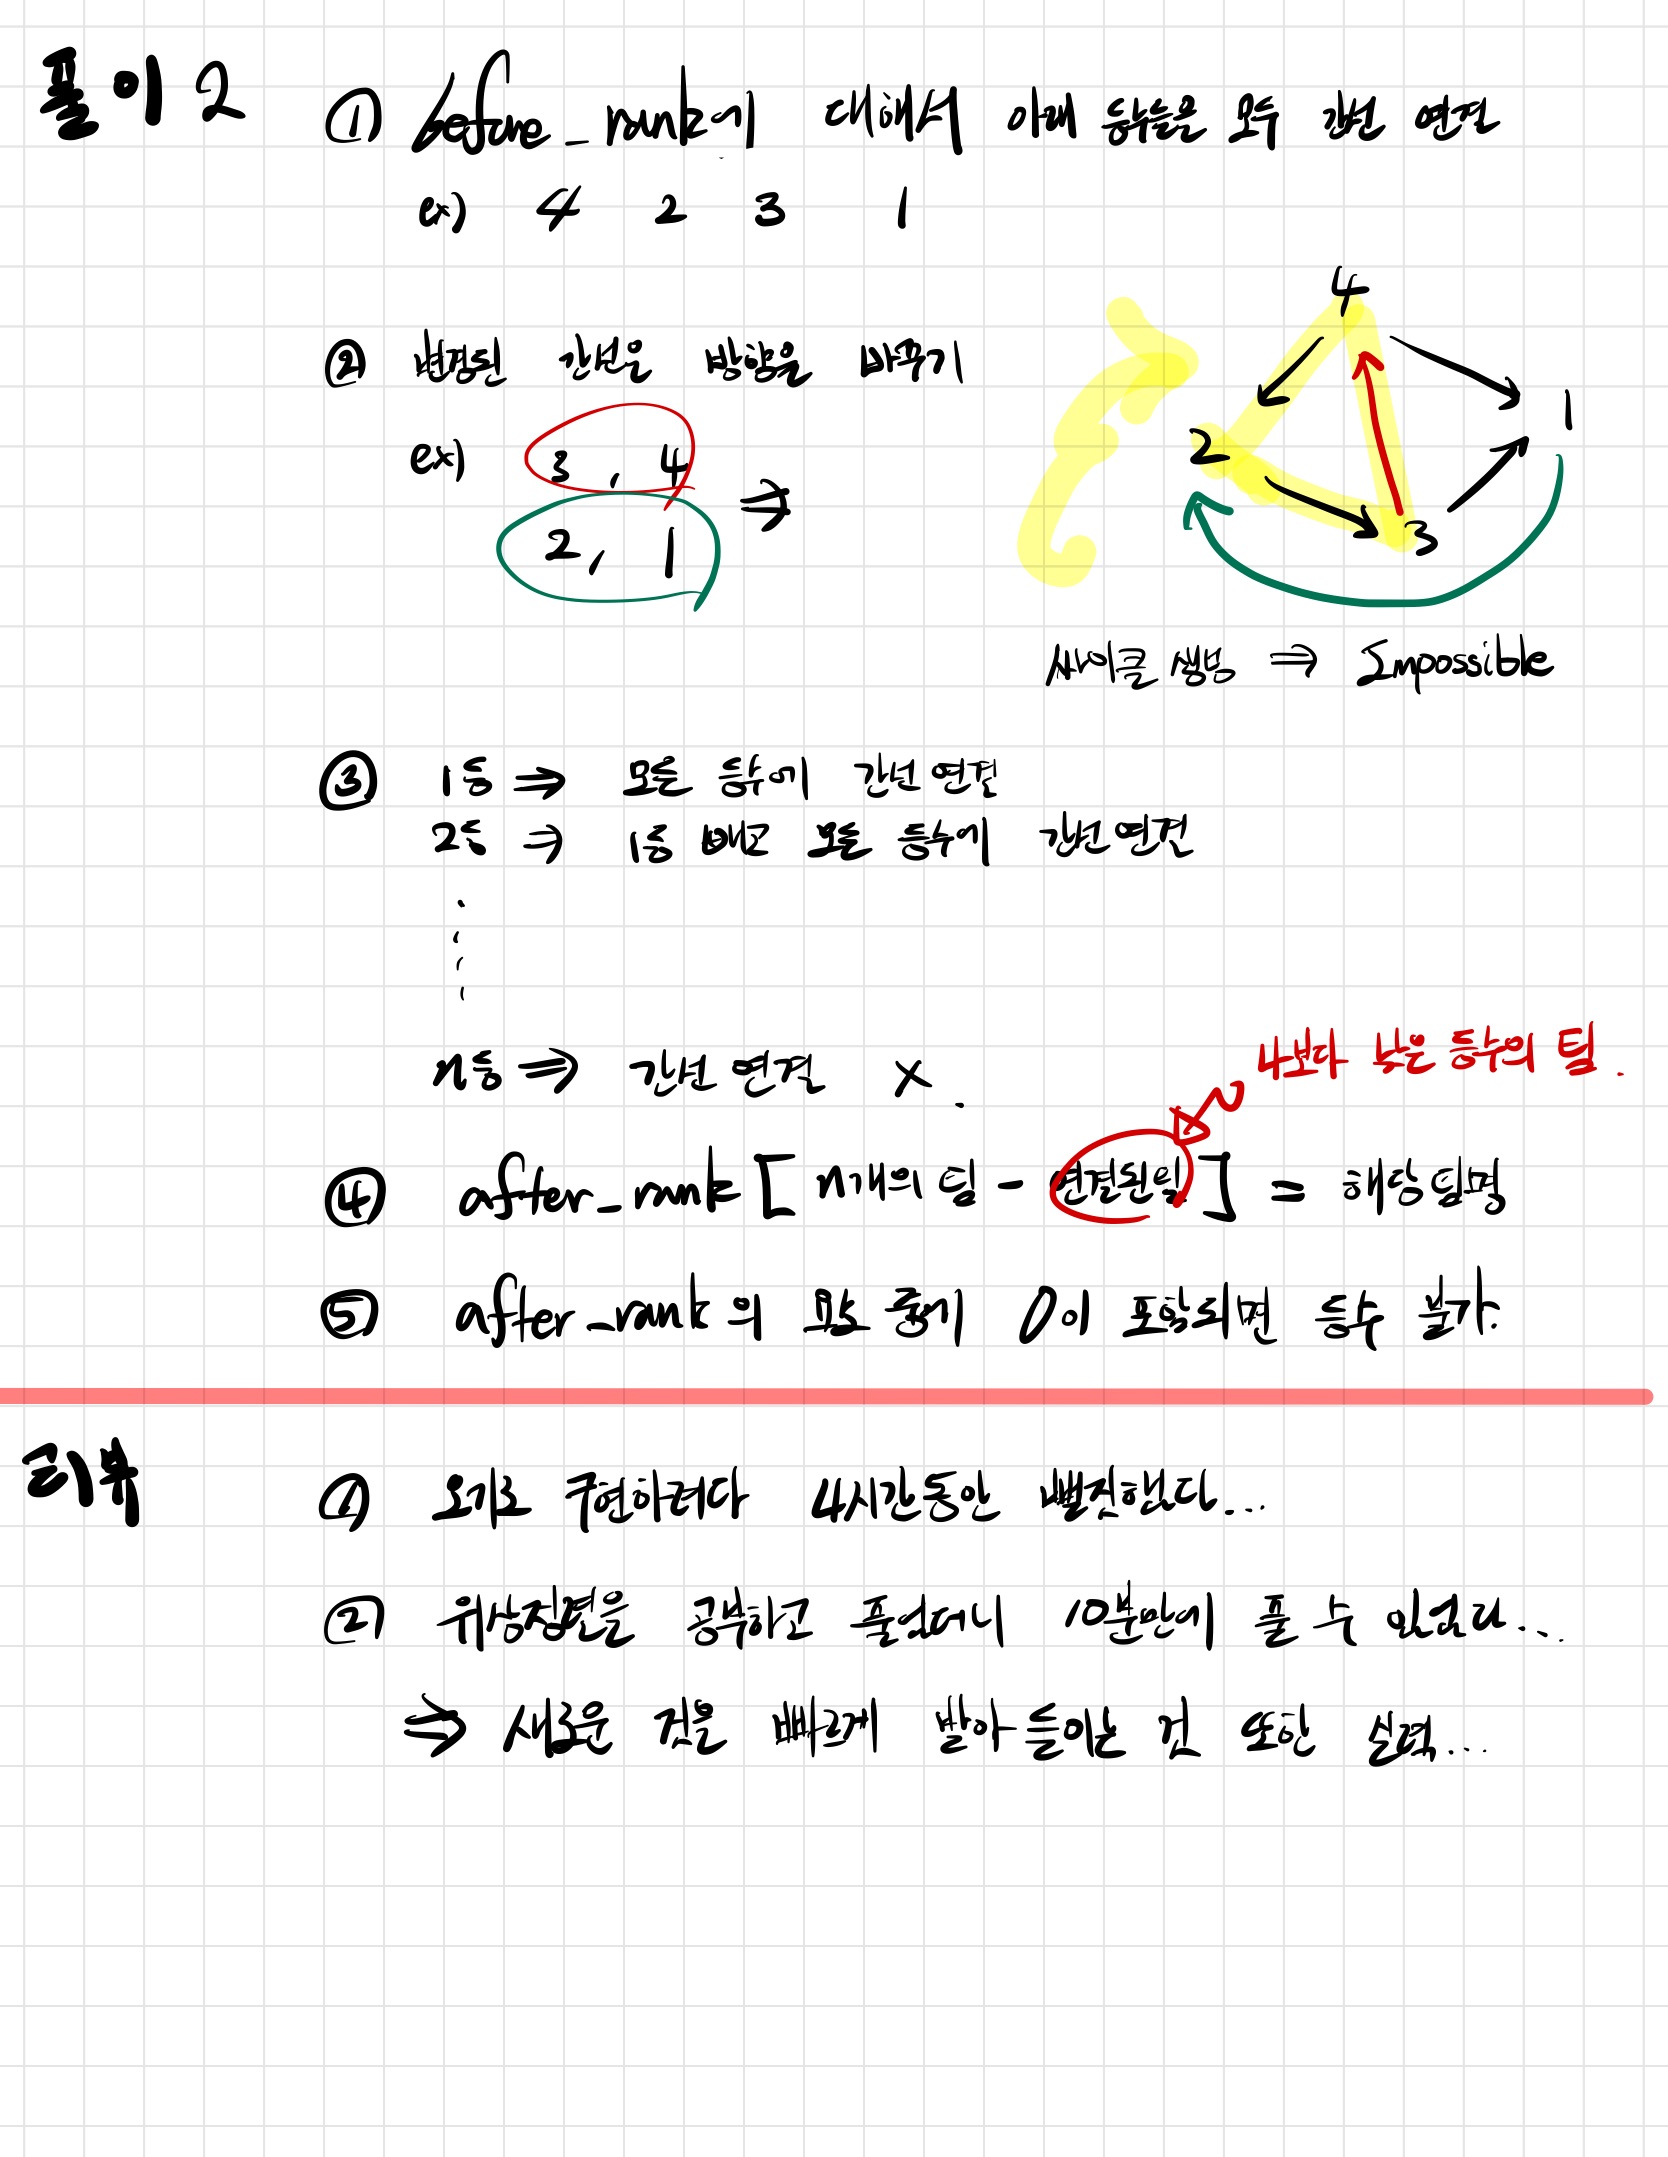 풀이 2
① before_rank에 대해서 아래 등수들은 모두 간선 연결
ex) 4 2 3 1
② 변경된 간선은 방향을 바꾸기
ex) 3, 4
2, 1 ⇒
4
1
2
3
사이클 생성 ⇒ Impossible
③ 1등 ⇒ 모든 등수에 간선 연결
2등 ⇒ 1등 빼고 모든 등수에 간선 연결
n등 ⇒ 간선 연결 X.
나보다 낮은 등수의 팀.
④ after_rank [n개의 팀 - 연결된 팀] = 해당 팀명
⑤ after_rank의 요소 중에 0이 포함되면 등수 불가.
리뷰
① 오기로 구현하려다 4시간동안 뻘짓했다...
② 위상정렬을 공부하고 풀었더니 10분만에 풀 수 있었다...
⇒ 새로운 것을 빠르게 받아 들이는 것 또한 실력...